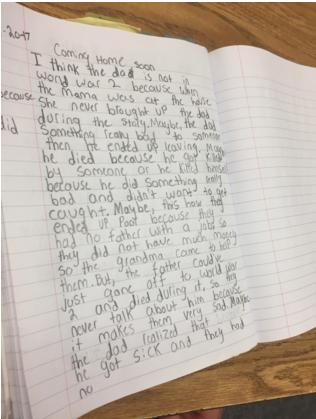 -20-17
Coming Home Soon
I think the dad is not in
world war 2 because when
the mama was at the house
because
she never brought up the dad
during the story. Maybe, the dad
did
something really bad to someone
then he ended up leaving. Maybe
he died because he got killed
by someone or he killed himself
because he did something really
bad and didn't want to get
caught. Maybe, this how they
ended up Poor because they
had no father with a job so
they did not have much money
so the grandma came to help
them. But, the father could've
just gone off to world war
2 and died during it, so they
never talk about him because
it makes them very sad. Maybe
the dad realized that
he got sick and they had
no